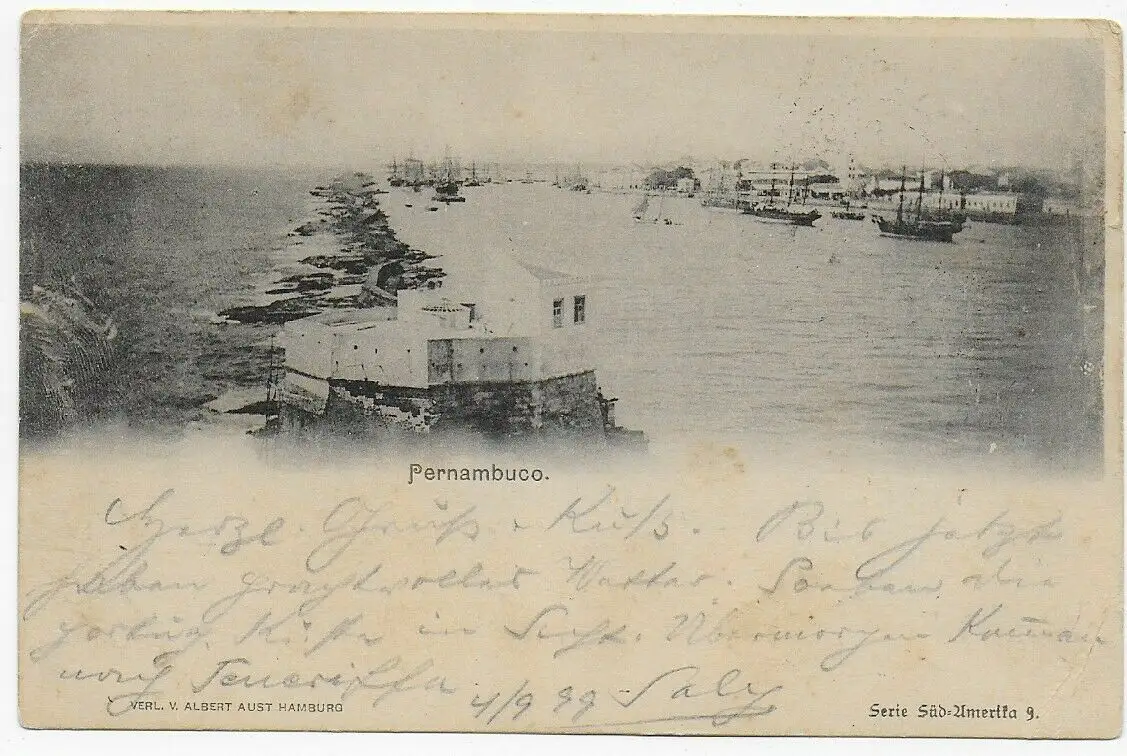 Pernambuco.
Herzl. Gruß u Kuß. Bis jetzt
haben prachtvolles Wetter. Soeben die
portug. Küste in Sicht. Übermorgen Kommen
nach Teneriffa 4/9 99 Saly
VERL. V. ALBERT AUST HAMBURG
Serie Süd-Amerika 9.